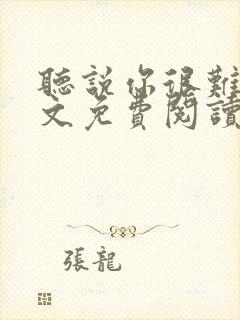 聽說你很難
文免費閱讀
張龍